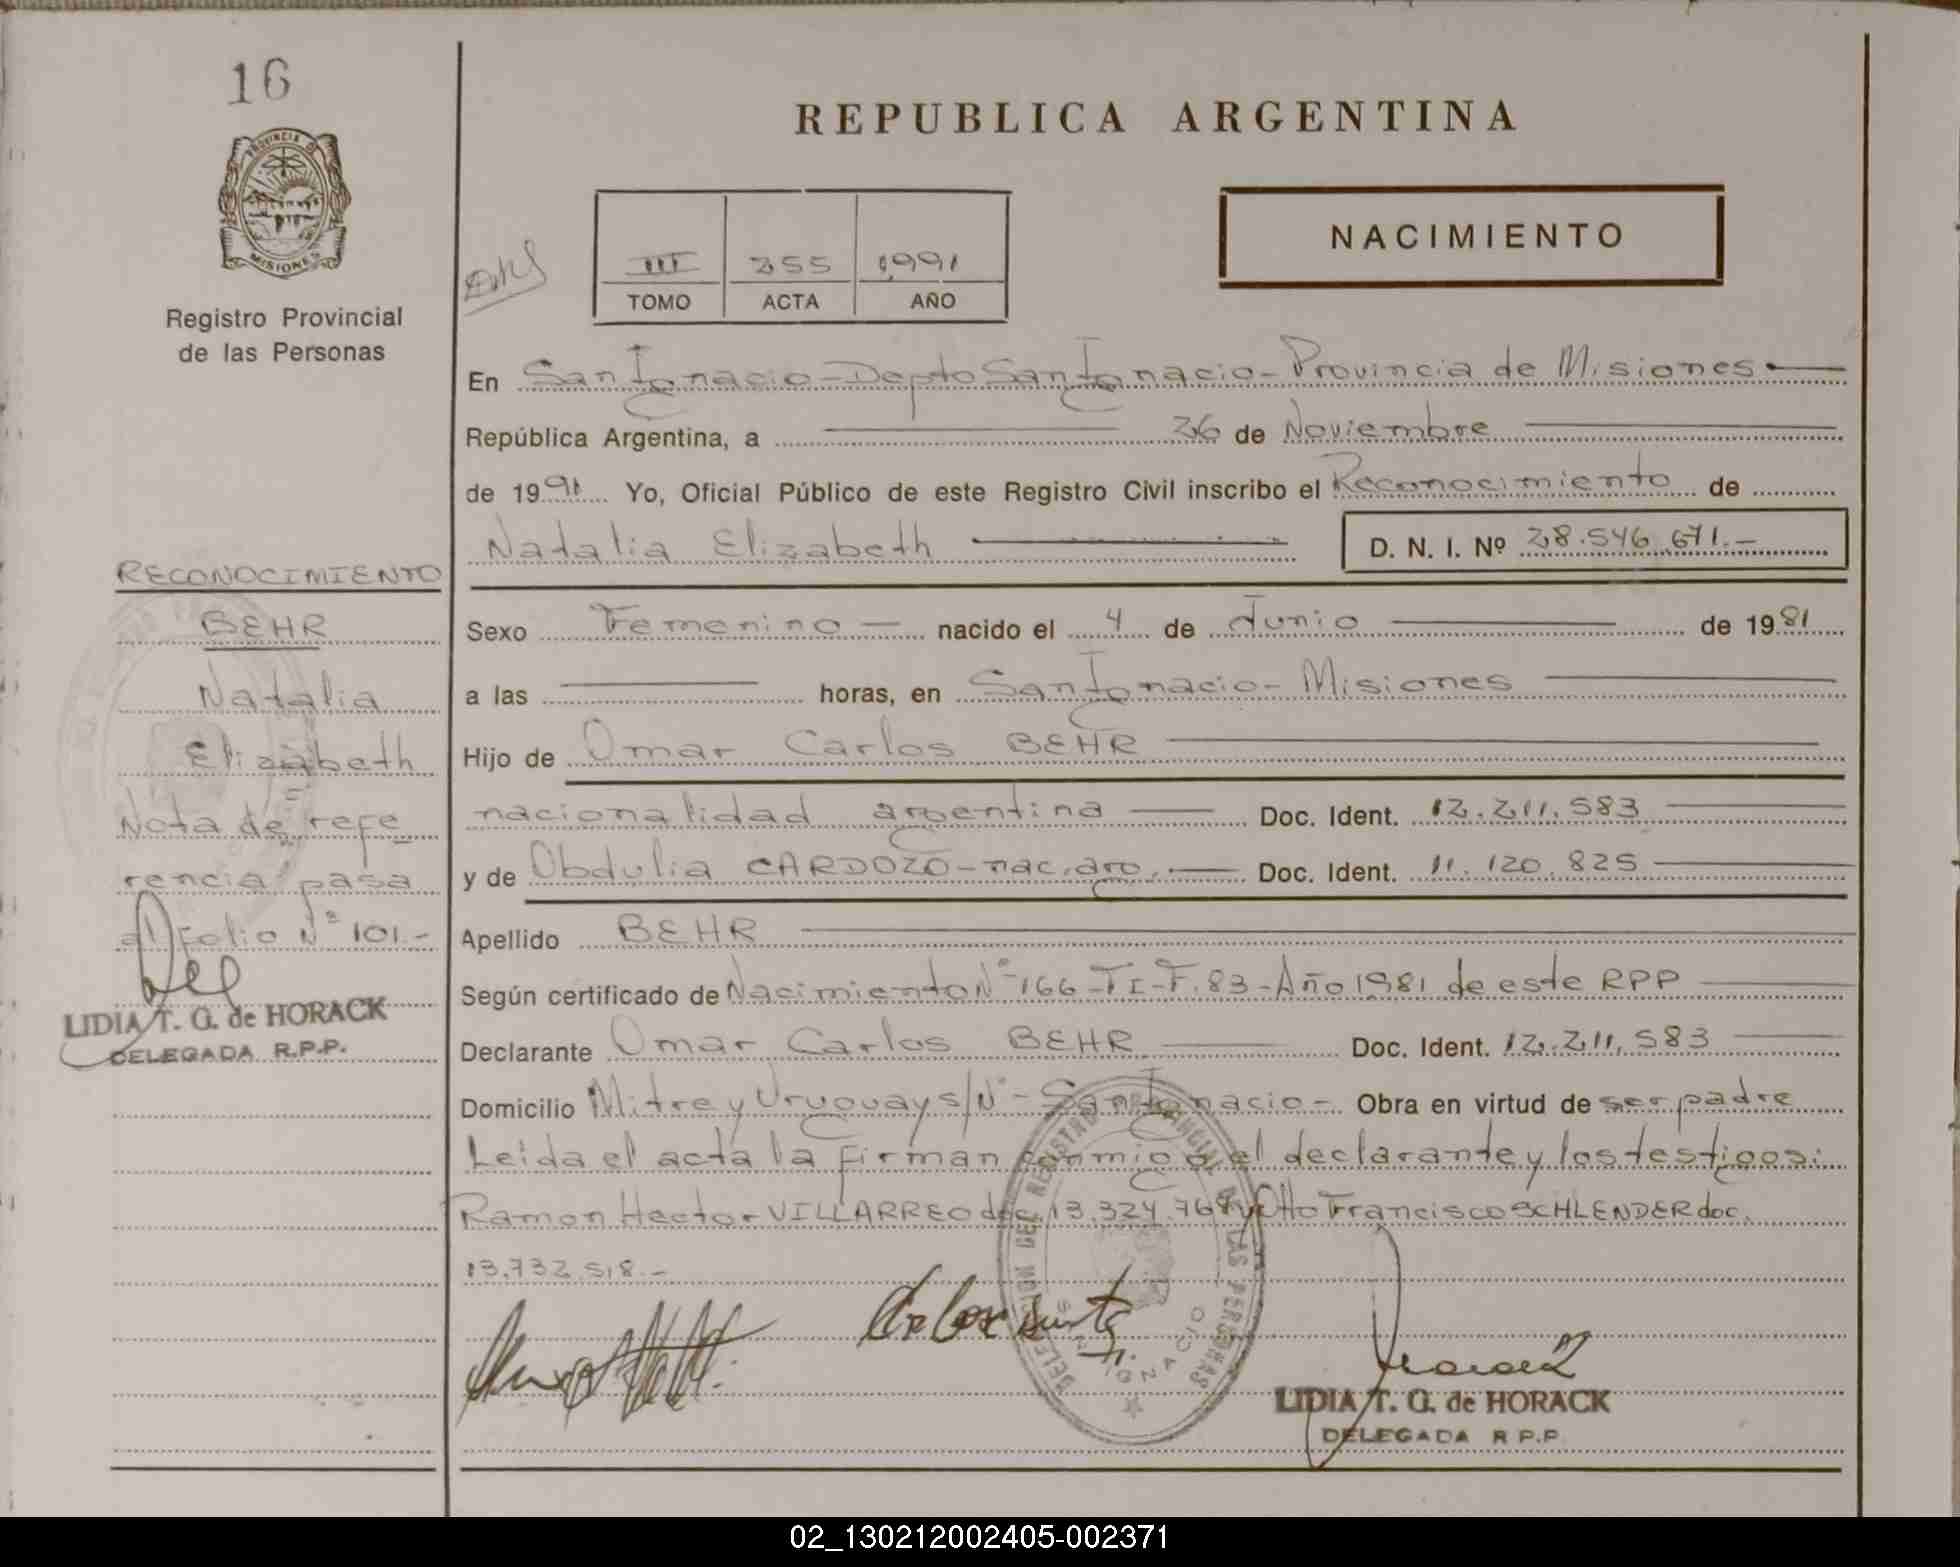 16
PROVINCIA DE
MISIONES
Registro Provincial
de las Personas
REPUBLICA ARGENTINA
III 255 1991
TOMO ACTA AÑO
NACIMIENTO
En San Ignacio - Depto San Ignacio - Provincia de Misiones
República Argentina, a 26 de Noviembre
de 1991 Yo, Oficial Público de este Registro Civil inscribo el Reconocimiento de
Natalia Elizabeth D. N. I. Nº 28.546.671.-
Sexo Femenino nacido el 4 de Junio de 1981
a las horas, en San Ignacio - Misiones
Hijo de Omar Carlos BEHR
nacionalidad argentina Doc. Ident. 12.211.583
y de Obdulia CARDOZO - nac. arg. Doc. Ident. 11.120.825
Apellido BEHR
Según certificado de Nacimiento Nº 166 - TI - F. 83 - Año 1981 de este RPP
Declarante Omar Carlos BEHR Doc. Ident. 12.211.583
Domicilio Mitre y Uruguay s/Nº - San Ignacio - Obra en virtud de ser padre
Leida el acta la firman conmigo el declarante y los testigos:
Ramon Hector VILLARREO doc. 13.324.768 y Otto Francisco SCHLENDER doc.
13.732.518.-
DELEGACION DEL REGISTRO PROVINCIAL DE LAS PERSONAS
SAN IGNACIO
LIDIA T. G. de HORACK
DELEGADA R.P.P.
RECONOCIMIENTO
BEHR
Natalia
Elizabeth
Nota de refe
rencia pasa
al folio Nº 101.-
LIDIA T. G. de HORACK
DELEGADA R.P.P.
02_130212002405-002371